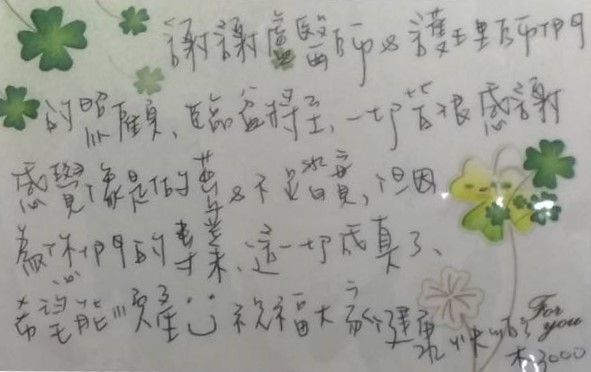 謝謝盧醫師&護理師們
的照顧、臨盆將至、一切皆很感謝
感覺像是&不踏實,但因
為你們的專業、這一切成真了、
希望能順產 祝福大家健康快順
For
you
3000